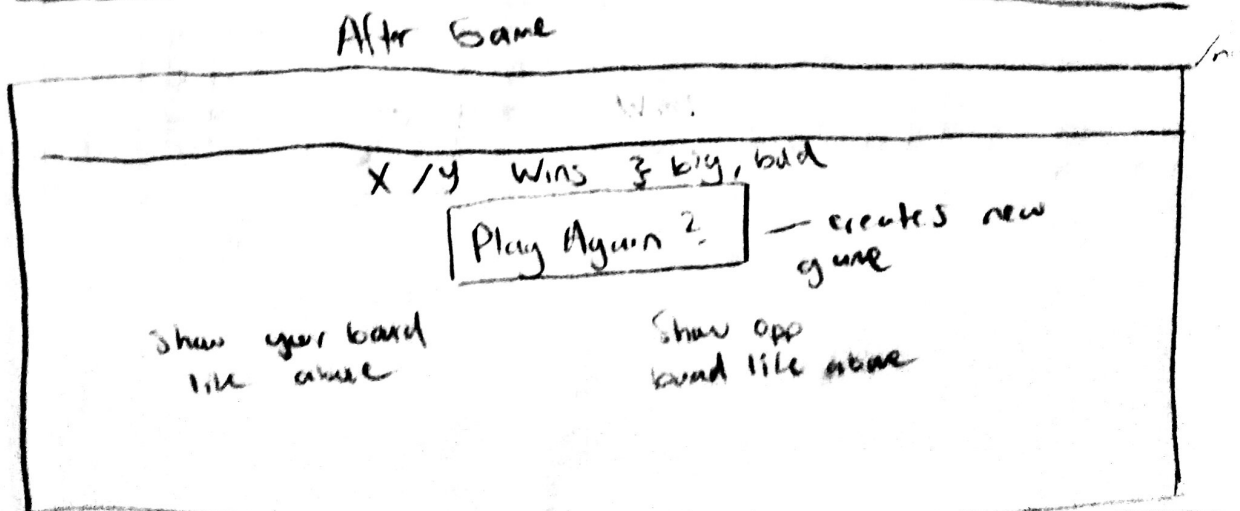 After Game
X / Y Wins } big, bold
Play Again?
— creates new
game
Show your board
like above
Show opp
board like above